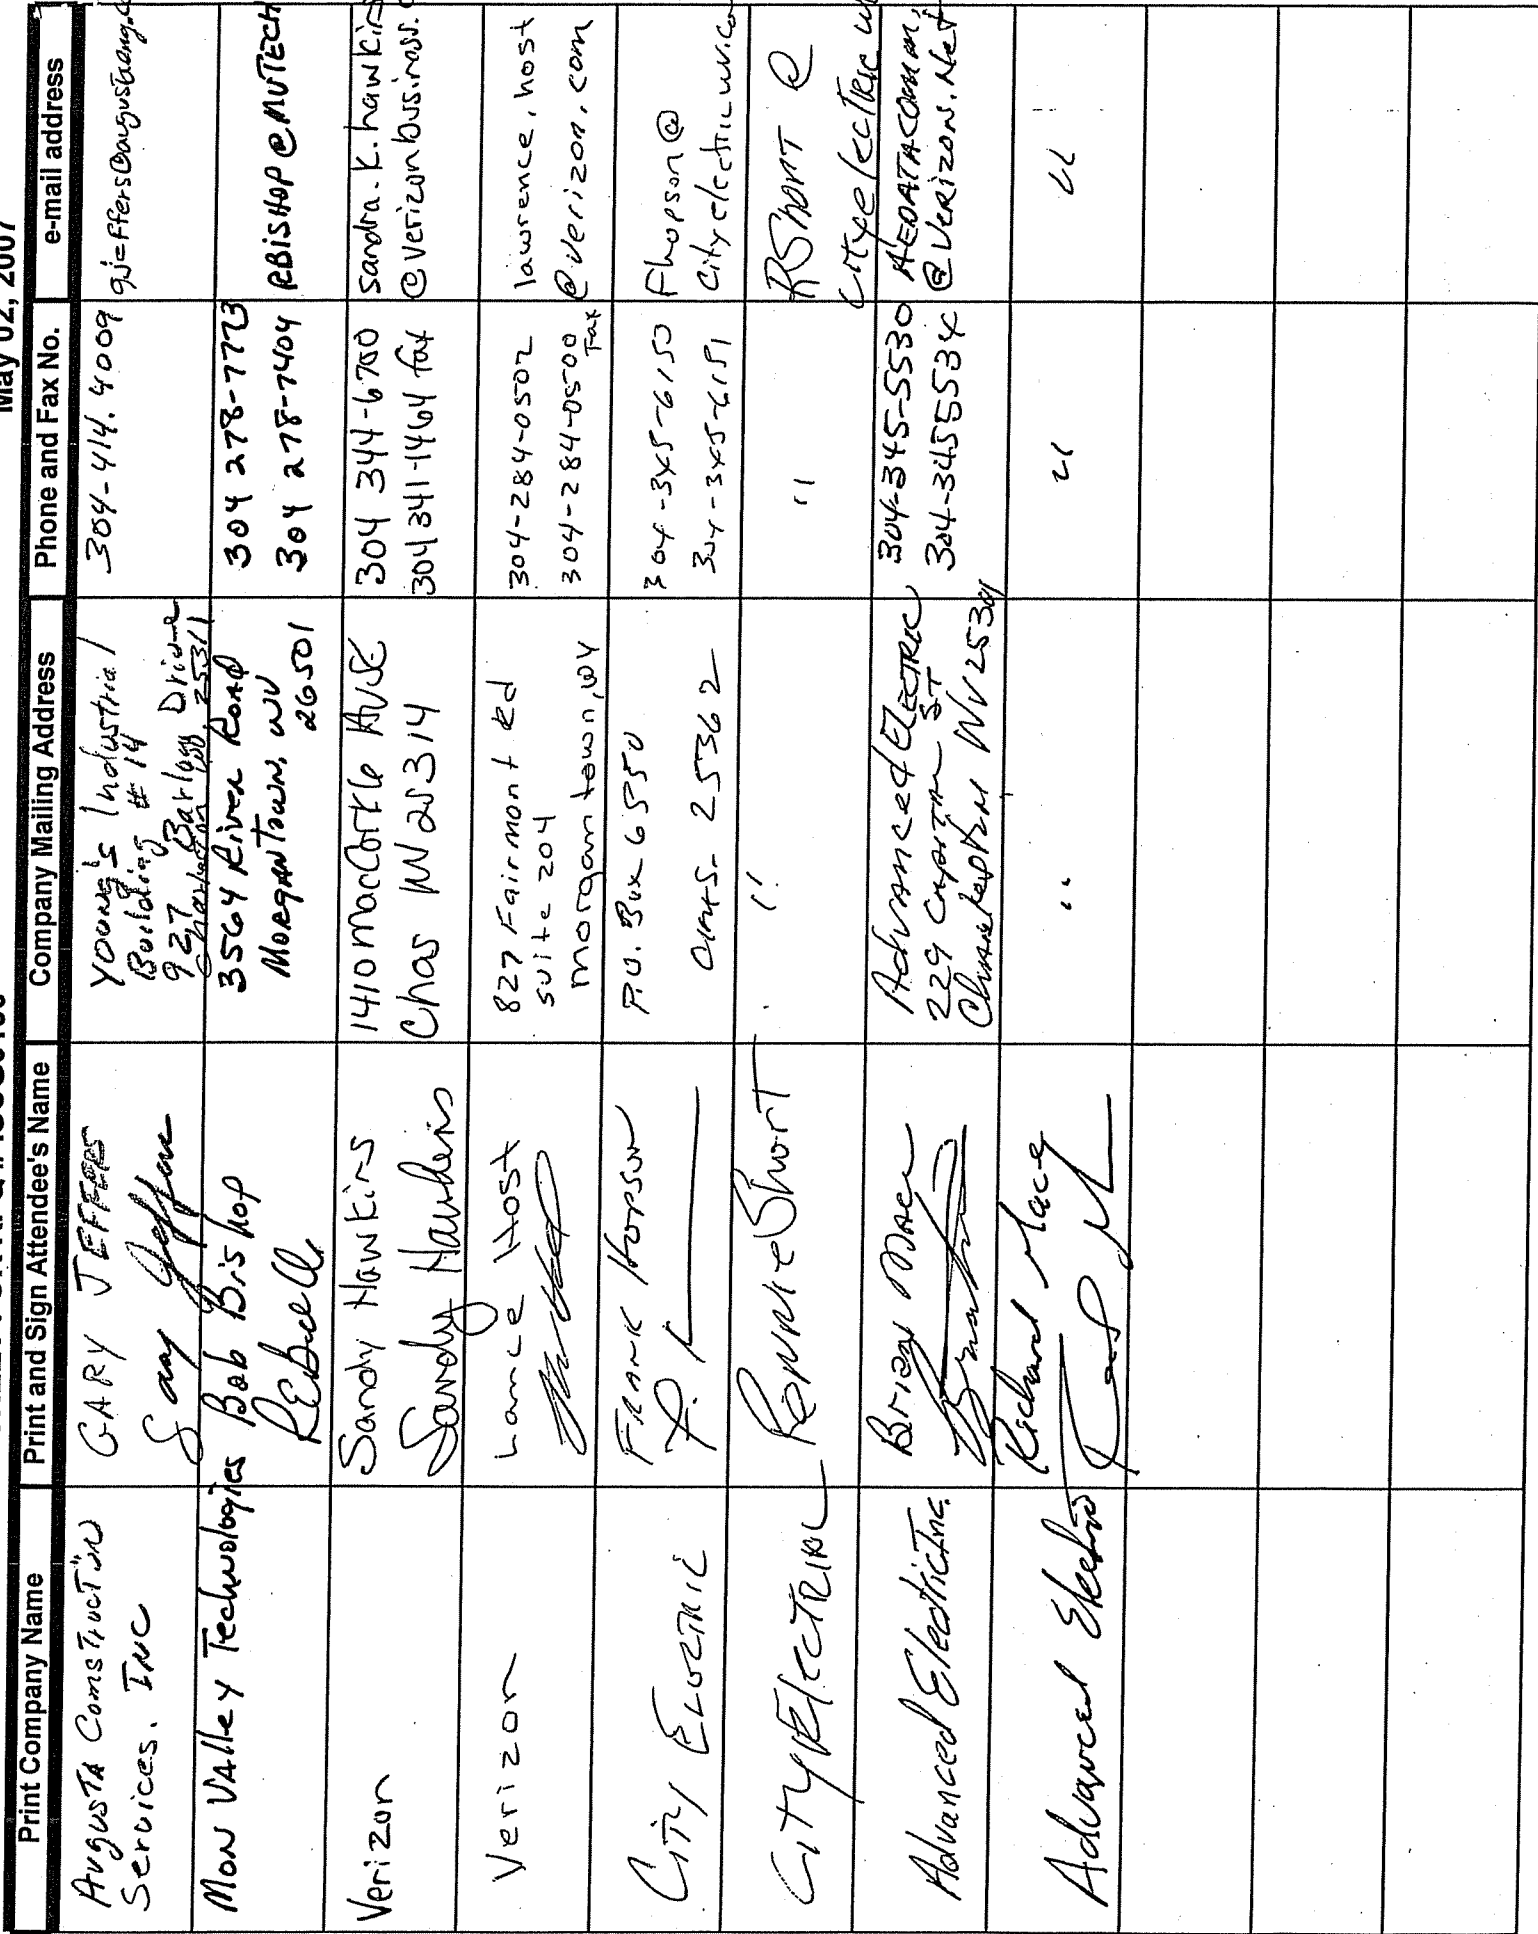 May 02, 2007
Print Company Name
Print and Sign Attendee's Name
Company Mailing Address
Phone and Fax No.
e-mail address
Augusta Construction
Services. Inc
GARY JEFFERS
Gary Jeffers
Young's Industrial
Building #14
927 Barlow Drive
Charleston WV. 25311
304-414.4009
Mon Valley Technologies
Bob Bishop
3564 River Road
Morgantown, WV
26501
304 278-7773
304 278-7404
RBISHOP@MVTECH
Verizon
Sandy Hawkins
Sandy Hawkins
1410 MacCorkle Ave SE
Chas WV 25314
304 344-6700
304 341-1464 fax
sandra.k.hawkins
@verizonbusiness.
Verizon
Lance Host
827 Fairmont Rd
suite 204
morgantown, WV
304-284-0502
304-284-0500
Fax
lawrence.host
@verizon.com
City Electric
FRANK HOPSON
P.O. Box 6550
CHAS- 25362
304-345-6150
304-345-6151
Fhopson@
Cityelectricwv.co
City Electric
Ronnie Short
"
"
RShort @
Cityelectric w
Advanced Electric Inc.
Brian Mace
Advanced Electric
229 Capitol ST
Charleston WV 25301
304-345-5530
304-3455534
AEDATACOMM
@Verizon.Net
Advanced Electric
Richard Mace
"
"
"